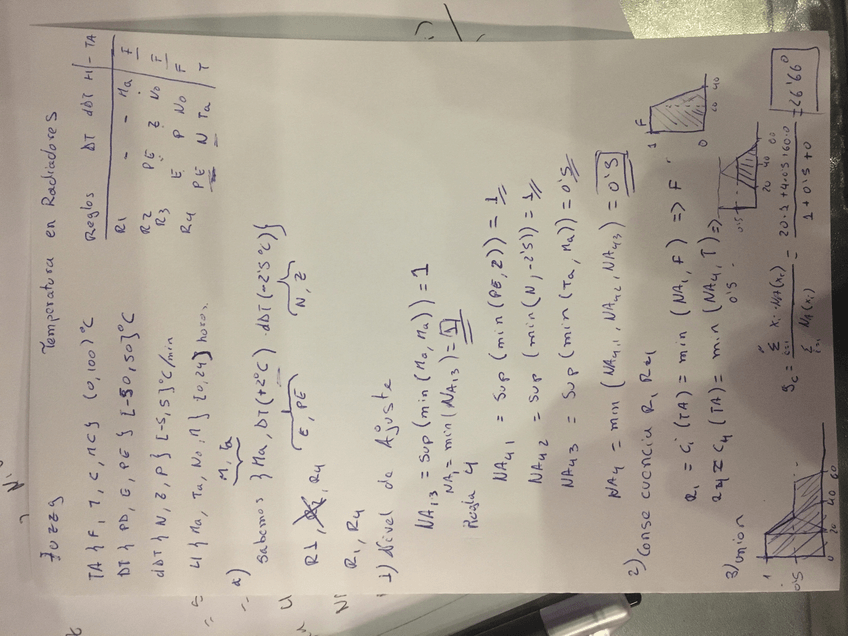 Fuzzy Temperatura en Radiadores
TA { F, T, C, MC } (0, 100) °C
DT { PD, E, PE } [-50, 50] °C
dDT { N, Z, P } [-5, 5] °C/min
H { Ma, Ta, No, M } [0, 24] horas.
Reglas DT dDT H - TA
R1 - - Ma F
R2 PE Z No F
R3 E P No F
R4 PE N Ta T
a)
M, Ta
Sabemos } Ma, DT (+2°C) . dDT (-2'5°C) }
E, PE N, Z
R1, R4
R1, R4
1) Nivel de Ajuste
NA1,3 = sup (min (Ma, Ma)) = 1
NA1 = min (NA1,3) = 1
Regla 4
NA4,1 = sup (min (PE, 2)) = 1
NA4,2 = sup (min (N, -2'5)) = 1
NA4,3 = sup (min (Ta, Ma)) = 0'5
NA4 = min (NA4,1, NA4,2, NA4,3) = 0'5
2) Consecuencia R1 R4
R1 = C1' (TA) = min (NA1, F) => F
1 F
0 20 40
R4 = C4 (TA) = min (NA4, T) =>
0'5
0'5
20 40 60
3) Union
1
0'5
0 20 40 60
gc = Σ xi · NA(xi) / Σ NA(xi) = 20·1 + 40·0'5 + 60·0 / 1 + 0'5 + 0 = 26'66°